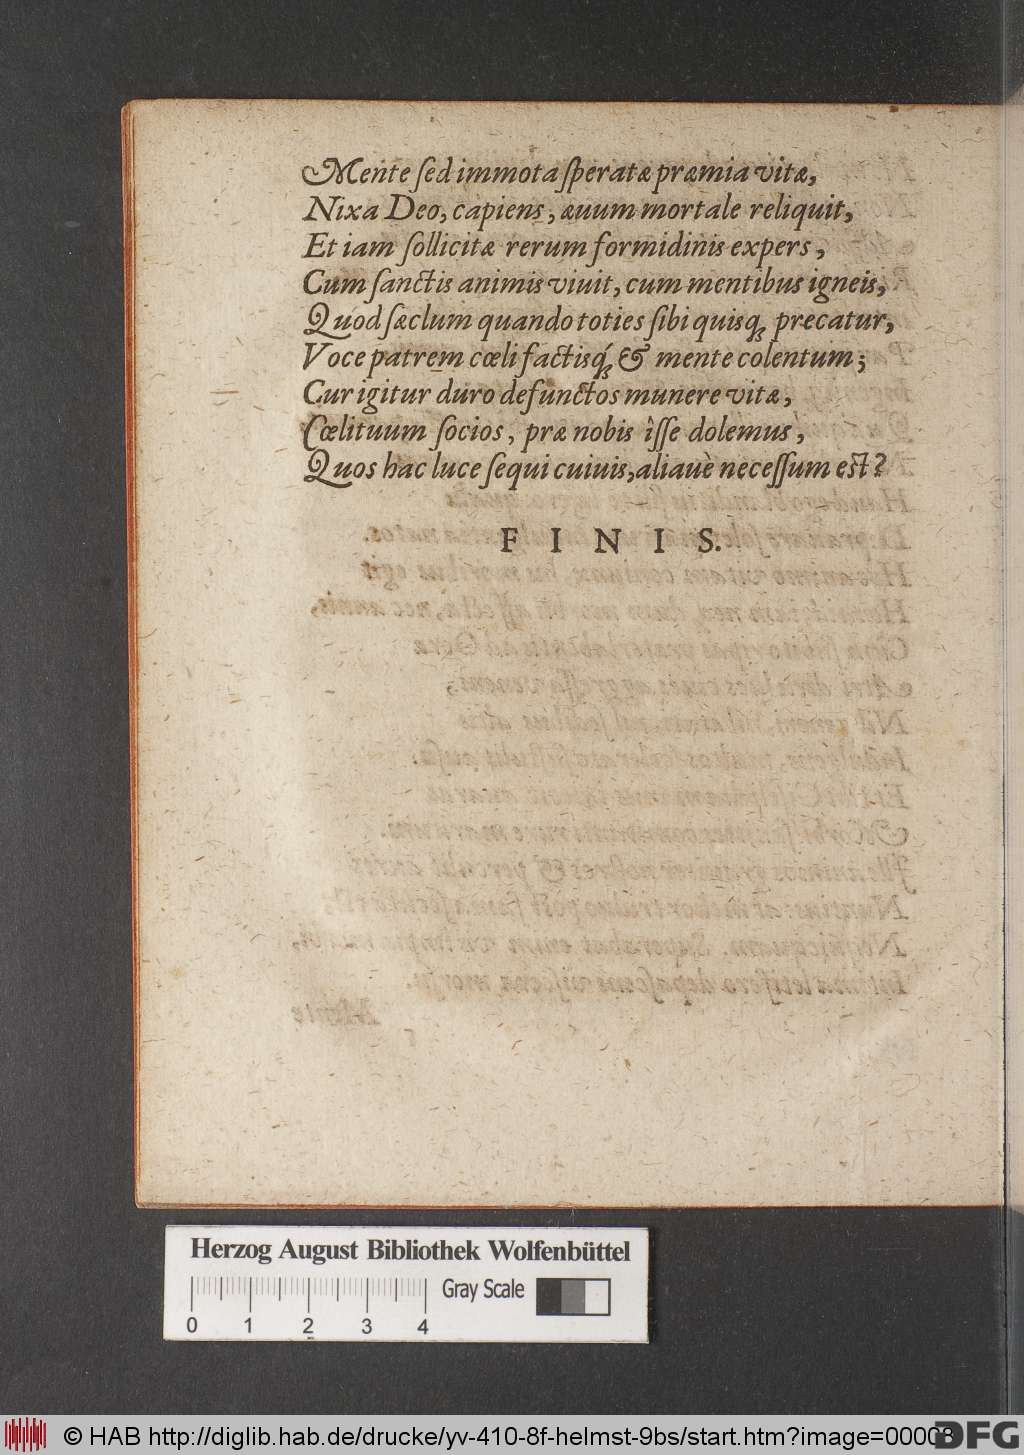 Mente ſed immota ſperatæ præmia vitæ,
Nixa Deo, capiens, æuum mortale reliquit,
Et iam ſollicitæ rerum formidinis expers,
Cum ſanctis animis viuit, cum mentibus igneis,
Quod ſæclum quando toties ſibi quisq; precatur,
Voce patrem cœli factisq́; & mente colentum;
Cur igitur duro defunctos munere vitæ,
Cœlituum ſocios, præ nobis îſſe dolemus,
Quos hac luce ſequi cuiuis, aliauè neceſſum eſt?
F I N I S.
Herzog August Bibliothek Wolfenbüttel
Gray Scale
0 1 2 3 4
© HAB http://diglib.hab.de/drucke/yv-410-8f-helmst-9bs/start.htm?image=00008
DFG